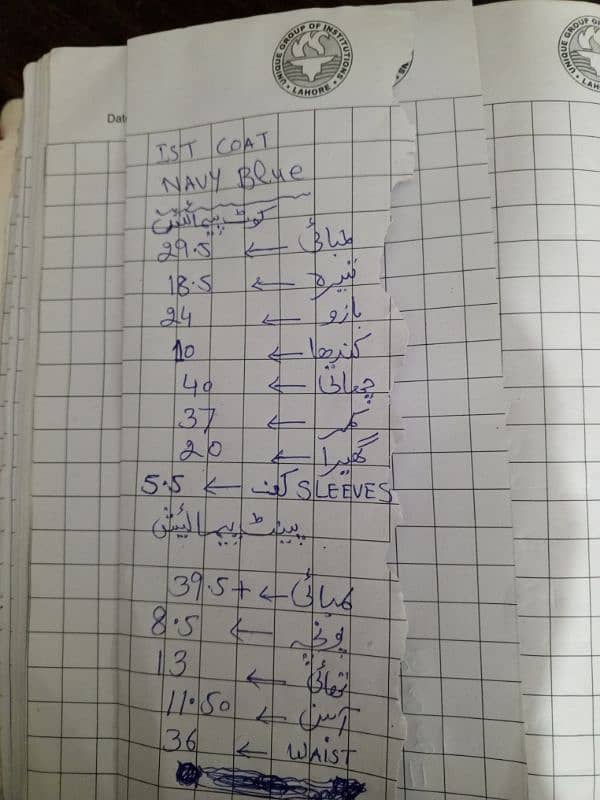 UNIQUE GROUP OF INSTITUTIONS
• LAHORE •
UNIQUE GROUP OF
LAH
Date
IST COAT
NAVY Blue
کوٹ پیمائش
لمبائی ← 29.5
تیرہ ← 18.5
بازو ← 24
کندھا ← 10
چھاتی ← 40
کمر ← 37
گھیرا ← 20
SLEEVES کف ← 5.5
پینٹ پیمائش
لمبائی ← 39.5+
پونچہ ← 8.5
تھائی ← 13
آسن ← 11.50
WAIST ← 36